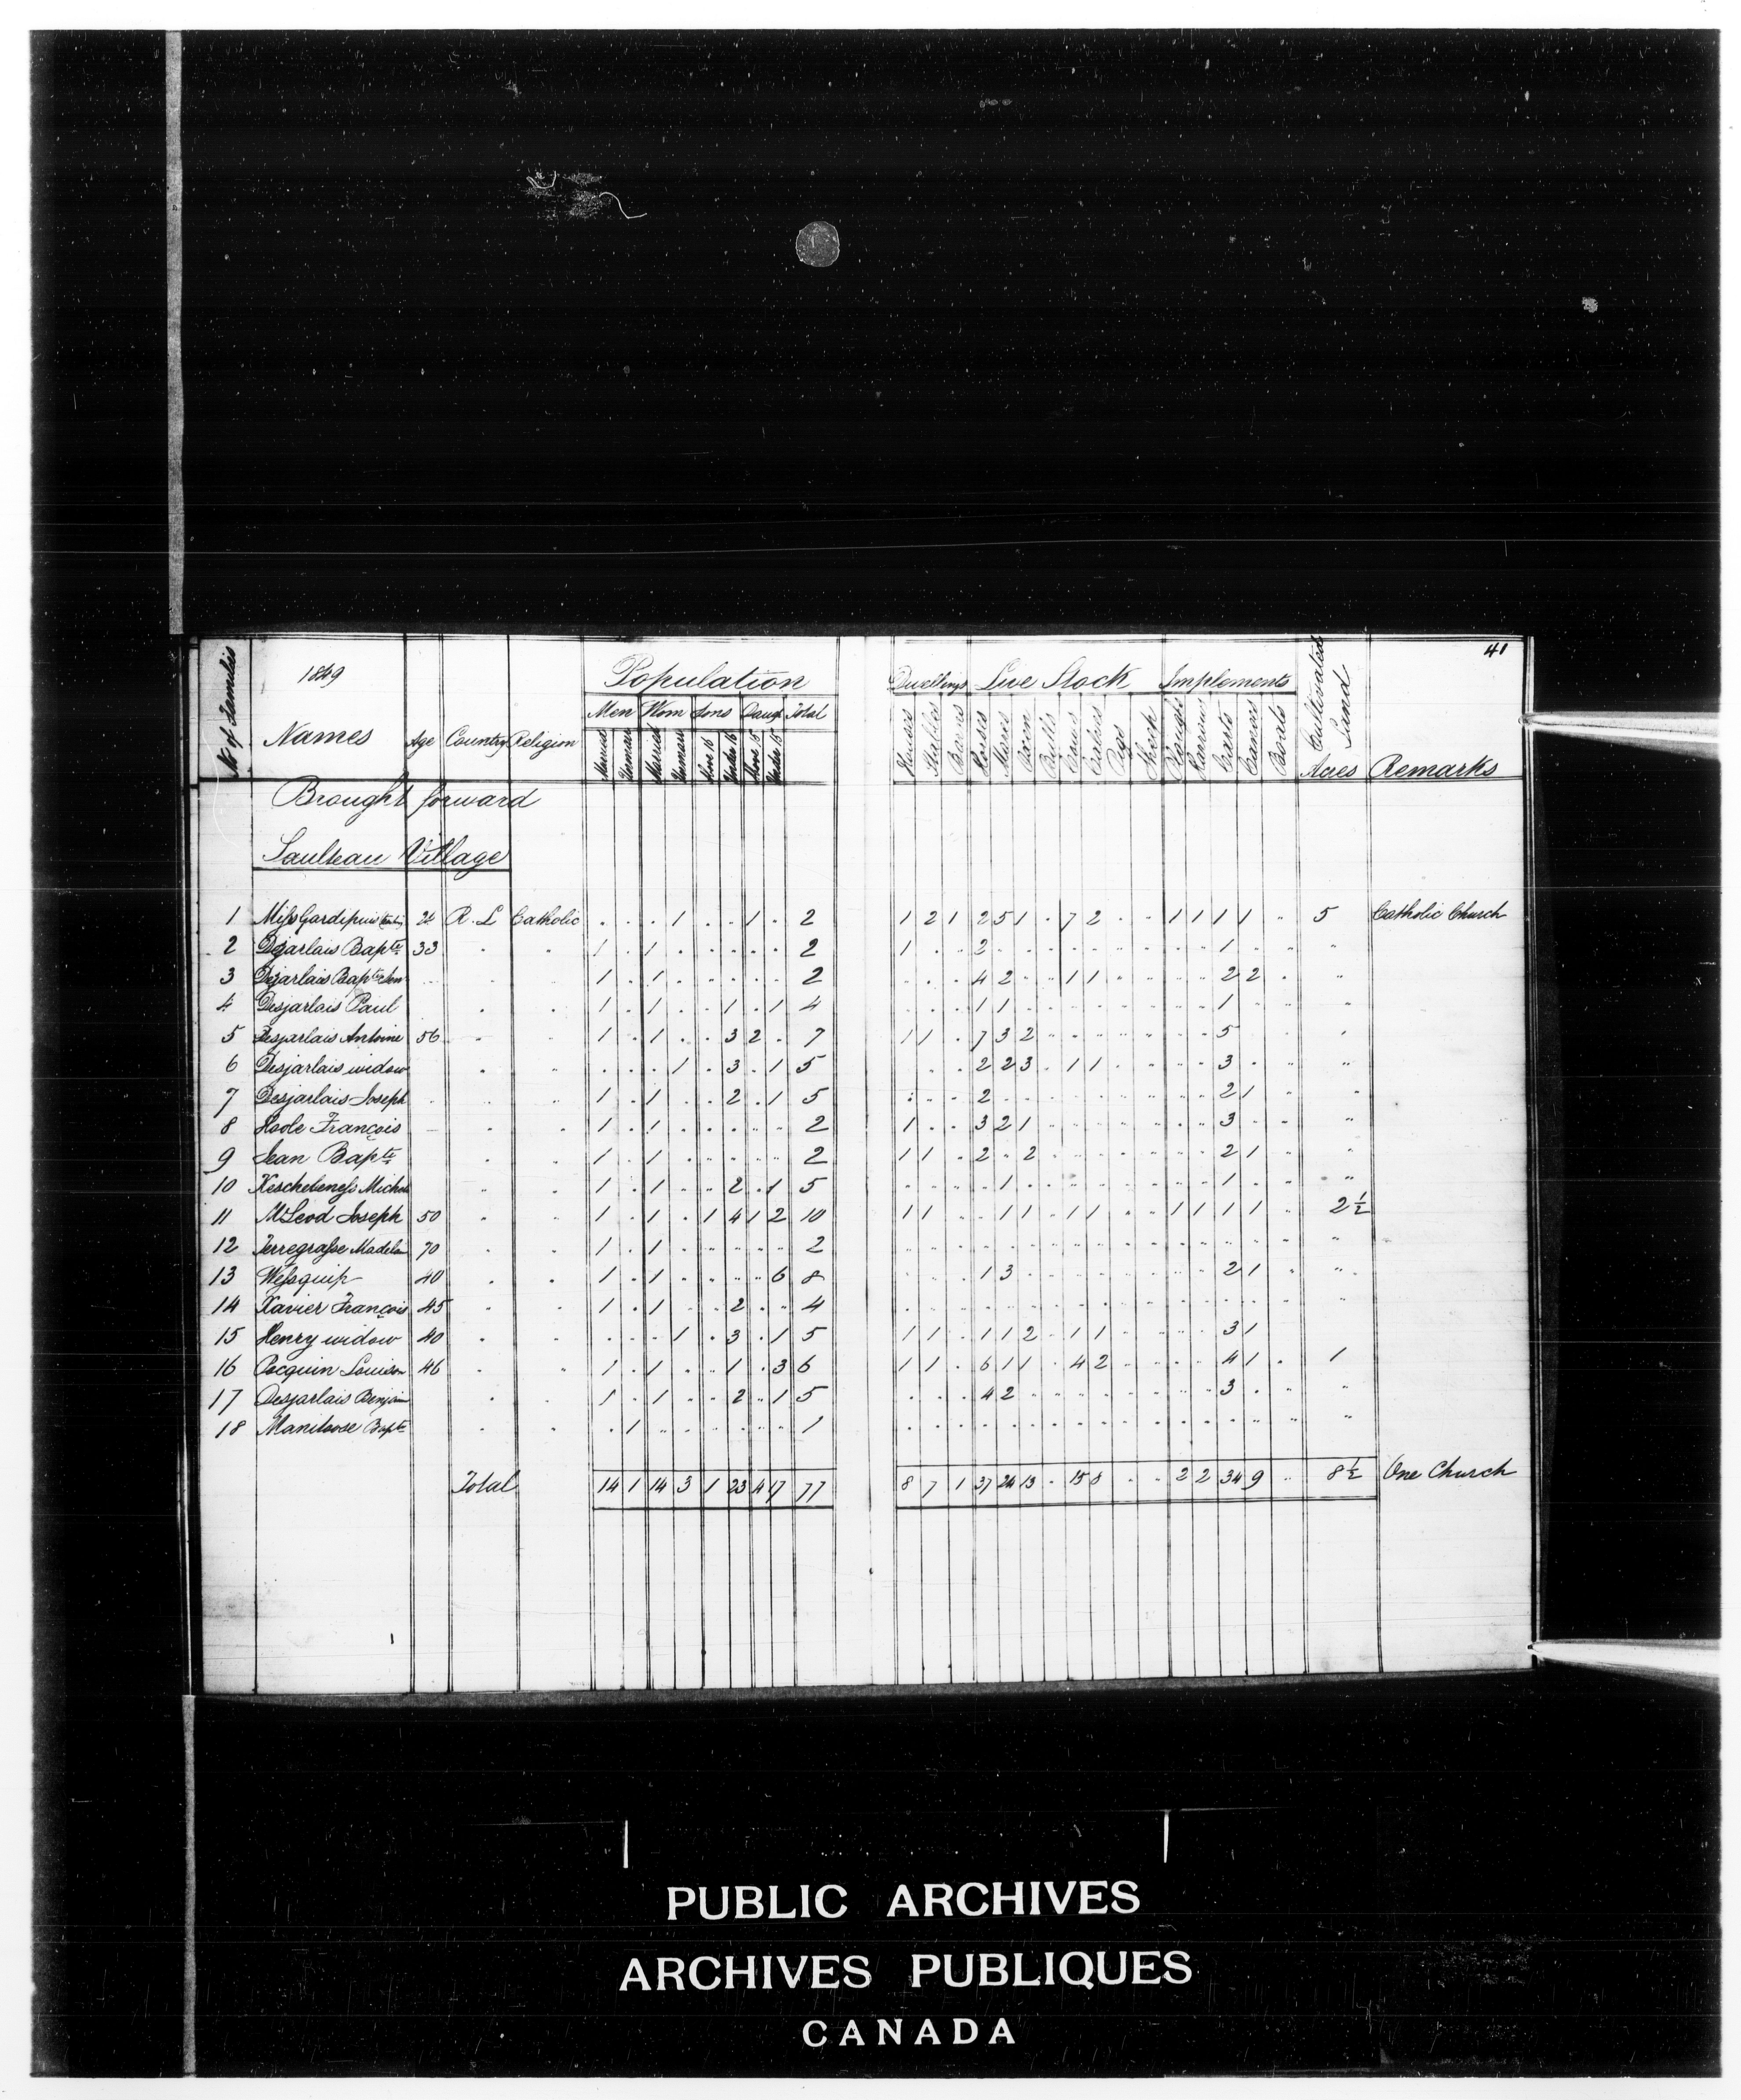 41
1849
Population
Dwellings Live Stock Implements Cultivated Land
Men Wom Sons Daugt Total
No of Families Names Age Country Religion Married Unmarr Married Unmarr Above 16 Under 16 Above 15 Under 15 Houses Stables Barns Horses Mares Oxen Bulls Cows Calves Pigs Sheep Ploughs Harrows Carts Canoes Boats Acres Remarks
Brought forward
Saulteau Village
1 Miss Gardipuis R. L Catholic . . . 1 . . 1 . 2 1 2 1 2 5 1 . 7 2 . .. 1 1 1 1 .. 5 Catholic Church
2 Dejarlais Bapte 33 . . 1 . 1 . . . . . 2 1 . .. 2 . . . . . . . . . 1 . .. ..
3 Dejarlais Bapte Son .. . .. 1 . 1 . . . . . 2 . . . 4 2 .. .. 1 1 . . .. . 2 2 . ..
4 Desjarlais Paul . . 1 . 1 . . 1 . 1 4 . . . 1 1 . . . . . . . . 1 . .. ..
5 Desjarlais Antoine 56 . . 1 . 1 . . 3 2 . 7 1 1 . 7 3 2 . . . . . . . 5 . . .
6 Desjarlais widow . . . . . 1 . 3 . 1 5 . . . 2 2 3 . 1 1 . . . . 3 . .. ..
7 Desjarlais Joseph . . .. 1 . 1 . . 2 . 1 5 . . . 2 . . . . . . . . . 2 1 .. ..
8 Hoole François . . 1 . 1 . . . . . 2 1 . . 3 2 1 . . . . . . . 3 . . ..
9 Jean Bapte . . 1 . 1 . . . . . 2 1 1 . 2 . 2 . . . . . . . 2 1 .. ..
10 Keschebeness Michel .. . 1 . 1 . . 2 . 1 5 . . . . 1 . . . . . . . . 1 . .. ..
11 McLeod Joseph 50 . . 1 . 1 . 1 4 1 2 10 1 1 . . 1 1 . 1 1 . . 1 1 1 1 .. 2 ½
12 Jerregrasse Madelain 70 . . 1 . 1 . . . . . 2 . . . . . . . . . . . . . . . . ..
13 Wessquip 40 . . 1 . 1 . . . . 6 8 . . . 1 3 . . . . . . . . 2 1 . ..
14 Xavier François 45 . . 1 . 1 . . 2 . . 4 . . . . . . . . . . . . . . . . ..
15 Henry widow 40 . . . . . 1 . 3 . 1 5 1 1 . 1 1 2 . 1 1 . . . . 3 1
16 Pocquin Louison 46 . . 1 . 1 . . 1 . 3 6 1 1 . 6 1 1 . 4 2 . . . . 4 1 . 1
17 Desjarlais Benjamin . . 1 . 1 . . 2 . 1 5 . . . 4 2 . . . . . . . . 3 . .. ..
18 Manitoose Bapte . . . 1 . . . . . . 1 . . . . . . . . . . . . . . . . ..
Total 14 1 14 3 1 23 4 17 77 8 7 1 37 24 13 . 15 8 . . 2 2 34 9 .. 8 ½ One Church
PUBLIC ARCHIVES
ARCHIVES PUBLIQUES
CANADA